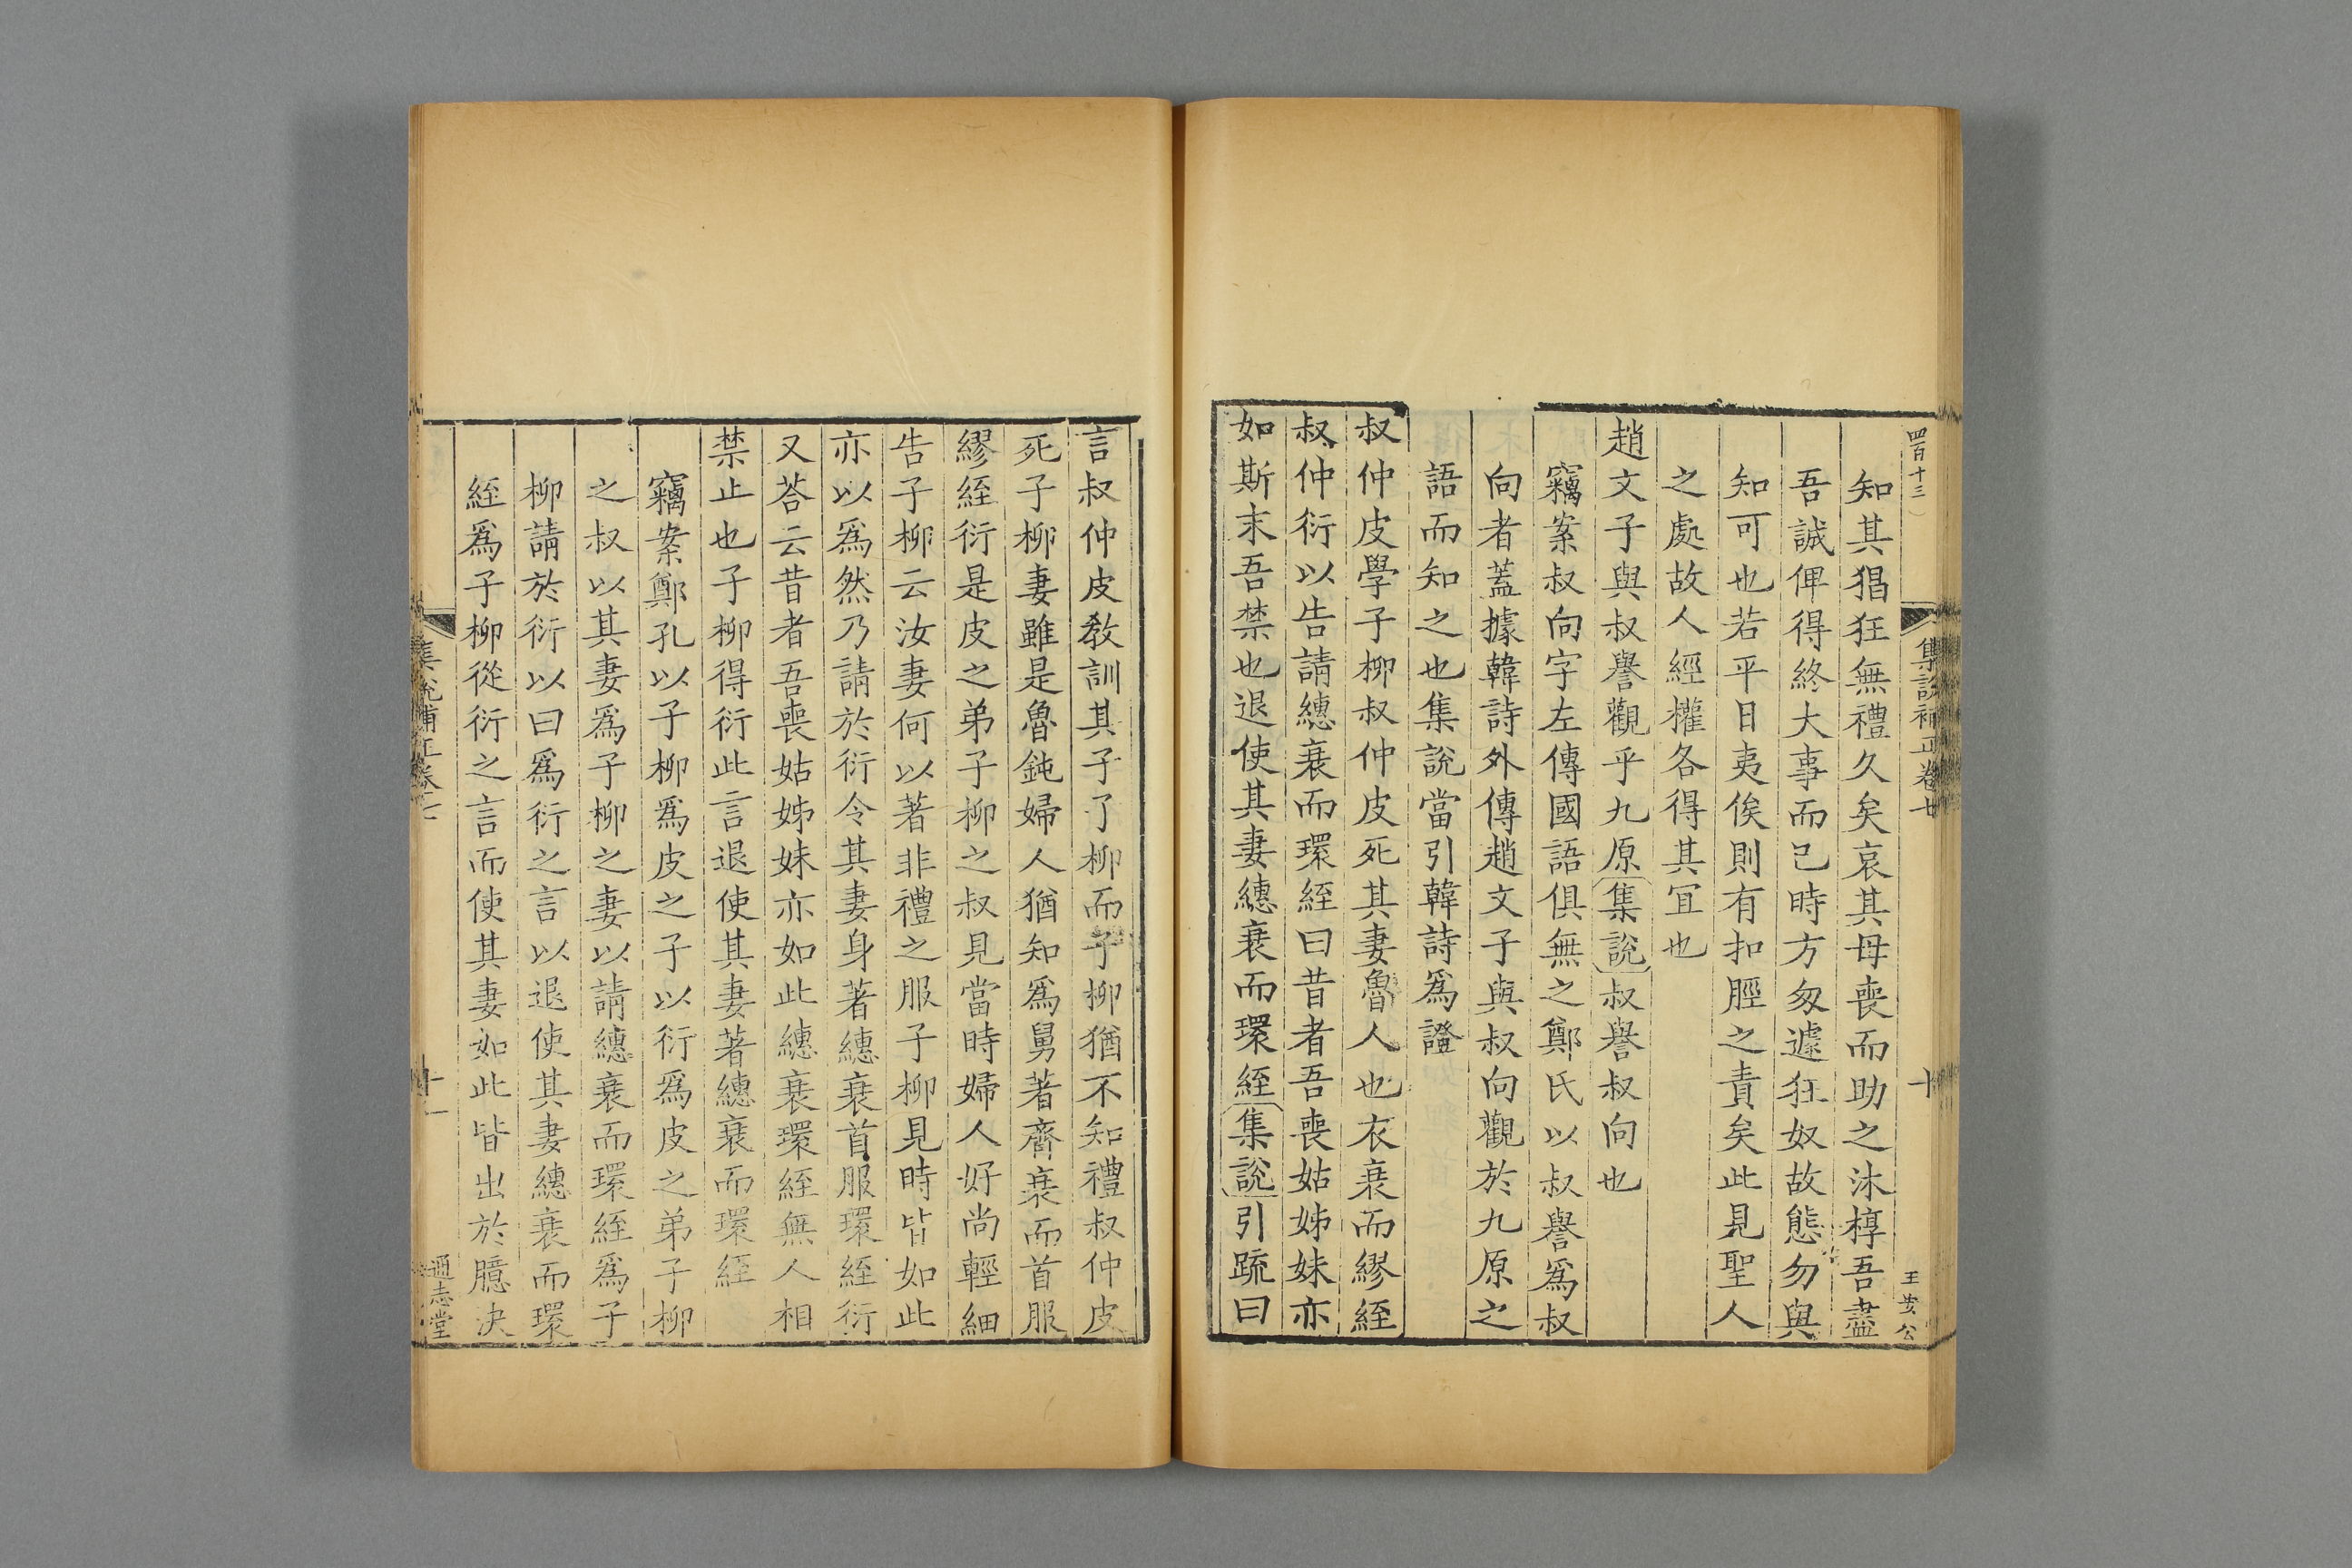 四百十三
集説補正卷廿
十
王芳公
知其猖狂無禮久矣哀其母喪而助之沐椁吾盡
吾誠俾得終大事而已時方匆遽狂奴故態勿與
知可也若平日夷俟則有扣脛之責矣此見聖人
之處故人經權各得其冝也
趙文子與叔譽觀乎九原集說叔譽叔向也
竊案叔向字左傳國語俱無之鄭氏以叔譽爲叔
向者蓋據韓詩外傳趙文子與叔向觀於九原之
語而知之也集說當引韓詩爲證
叔仲皮學子柳叔仲皮死其妻魯人也衣衰而繆絰
叔仲衍以告請繐衰而環絰曰昔者吾喪姑姊妹亦
如斯末吾禁也退使其妻繐衰而環絰集說引疏曰
言叔仲皮教訓其子子柳而子柳猶不知禮叔仲皮
死子柳妻雖是魯鈍婦人猶知爲舅著齊衰而首服
繆絰衍是皮之弟子柳之叔見當時婦人好尚輕細
告子柳云汝妻何以著非禮之服子柳見時皆如此
亦以爲然乃請於衍令其妻身著繐衰首服環絰衍
又荅云昔者吾喪姑姊妹亦如此繐衰環絰無人相
禁止也子柳得衍此言退使其妻著繐衰而環絰
竊案鄭孔以子柳爲皮之子以衍爲皮之弟子柳
之叔以其妻爲子柳之妻以請繐衰而環絰爲子
柳請於衍以曰爲衍之言以退使其妻繐衰而環
絰爲子柳從衍之言而使其妻如此皆出於臆決
集說補正卷
十一
通志堂